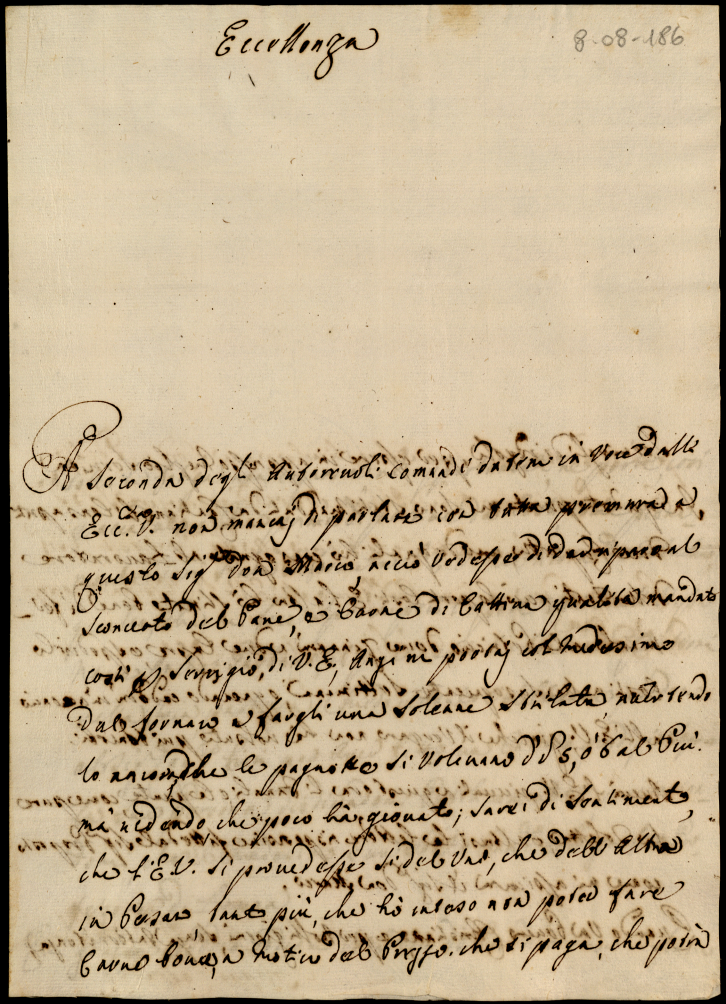 Eccellenza
8-08-186
A Seconda degl' Autorevoli Comandi datemi in Voce dall'
Ecc. V. non mancaj di parlare con tutta premura a
questo Sig. Don Marco acciò vedesse di dar riparo al
Sconcerto del Pane, e Carne di Cattiva qualità mandato
costì p Servizio di V. E, Anzi ne portaj col medesimo
dal fornaro a fargli una solenne Strilata, notetendo
lo ancora, che le pagnotte si volevano d' 5, ò 6 al Più.
mà vedendo che poco hà giovato, sarei di sentimento,
che l'E V. si provedesse si del Uno, che dell Altra
in Pesaro, tanto più, che hò inteso non poter fare
Carne bona, a motivo del Prezzo che si paga, che potrà